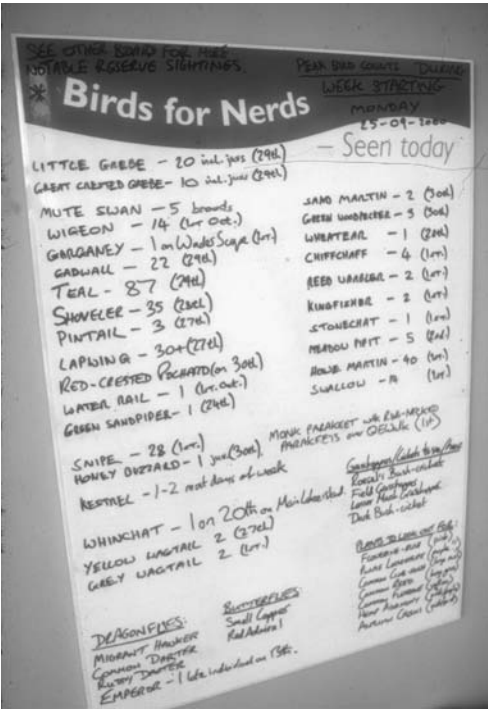 SEE OTHER BOARD FOR MORE
NOTABLE RESERVE SIGHTINGS.
PEAK BIRD COUNTS DURING
WEEK STARTING
MONDAY
25-09-2000
* Birds for Nerds
– Seen today
LITTLE GREBE – 20 incl. juvs (29th)
GREAT CRESTED GREBE – 10 incl. juvs (29th)
MUTE SWAN – 5 broods
WIGEON – 14 (1st Oct.)
GARGANEY – 1 on Wader Scrape (1st)
GADWALL – 22 (29th)
TEAL – 87 (29th)
SHOVELER – 35 (28th)
PINTAIL – 3 (27th)
LAPWING – 30+ (27th)
RED-CRESTED POCHARD (on 30th)
WATER RAIL – 1 (1st. Oct.)
GREEN SANDPIPER – 1 (24th)
SNIPE – 28 (1st.)
HONEY BUZZARD – 1 juv. (30th)
KESTREL – 1-2 most days of week
WHINCHAT – 1 on 20th on Main Lake
YELLOW WAGTAIL 2 (27th)
GREY WAGTAIL 2 (1st.)
SAND MARTIN – 2 (30th)
GREEN WOODPECKER – 3 (30th)
WHEATEAR – 1
CHIFFCHAFF – 4 (1st.)
REED WARBLER – 2 (1st)
KINGFISHER – 2 (1st)
STONECHAT – 1 (1st)
MEADOW PIPIT – 5
HOUSE MARTIN – 40 (1st)
SWALLOW – (1st)
MONK PARAKEET with
PARAKEETS over (1st)
Roesel's Bush-cricket
Field Grasshopper
Lesser Marsh Grasshopper
Dark Bush-cricket
PLANTS TO LOOK OUT FOR:
DRAGONFLIES:
MIGRANT HAWKER
COMMON DARTER
RUDDY DARTER
EMPEROR – 1 late individual on 13th.
BUTTERFLIES:
Small Copper
Red Admiral